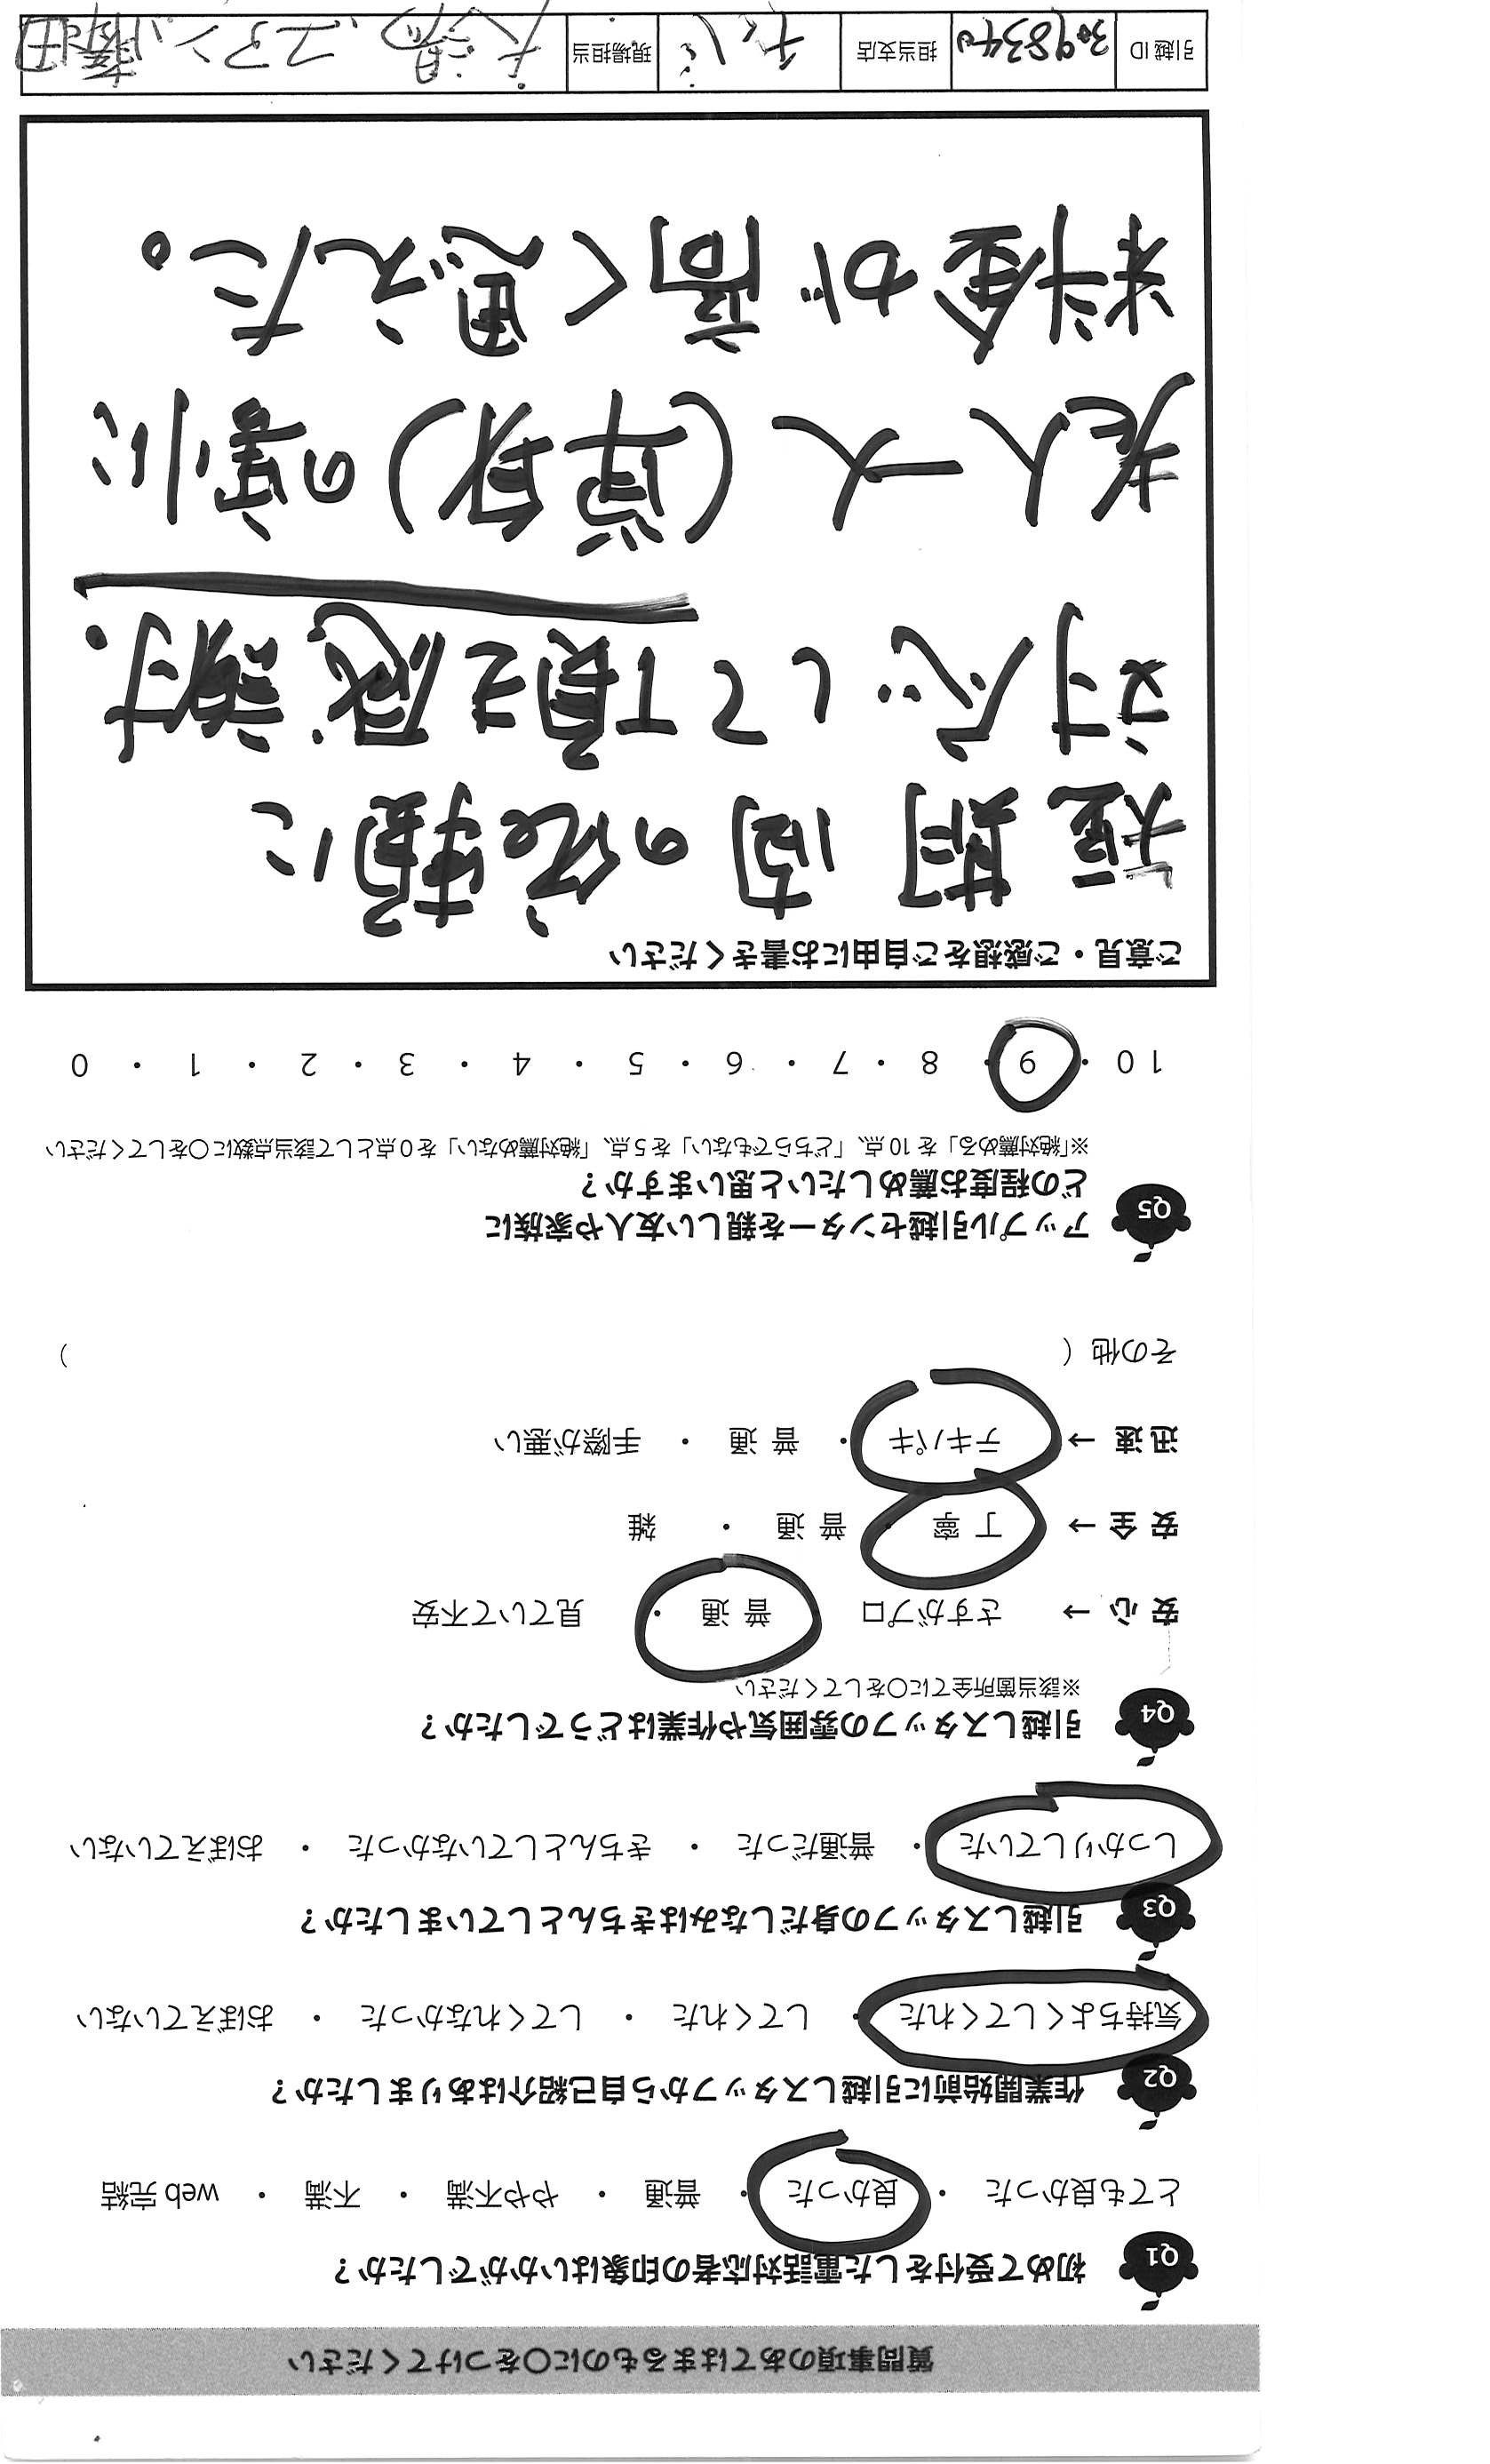 質問事項のあてはまるものに○をつけてください
Q1 初めて受付をした電話対応者の印象はいかがでしたか？
とても良かった ・ 良かった ・ 普通 ・ やや不満 ・ 不満 ・ web 完結
Q2 作業開始前に引越しスタッフから自己紹介はありましたか？
気持ちよくしてくれた ・ してくれた ・ してくれなかった ・ おぼえていない
Q3 引越しスタッフの身だしなみはきちんとしていましたか？
しっかりしていた ・ 普通だった ・ きちんとしていなかった ・ おぼえていない
Q4 引越しスタッフの雰囲気や作業はどうでしたか？
※該当箇所全てに○をしてください
安 心 → さすがプロ ・ 普 通 ・ 見ていて不安
安 全 → 丁 寧 ・ 普 通 ・ 雑
迅 速 → テキパキ ・ 普 通 ・ 手際が悪い
その他（ ）
Q5 アップル引越センターを親しい友人や家族に
どの程度お薦めしたいと思いますか？
※「絶対薦める」を 10 点、「どちらでもない」を 5 点、「絶対薦めない」を 0 点として該当点数に○をしてください
10 ・ 9 ・ 8 ・ 7 ・ 6 ・ 5 ・ 4 ・ 3 ・ 2 ・ 1 ・ 0
ご意見・ご感想をご自由にお書きください
短期間の依頼に
対応して頂き感謝.
老人一人（単身）の割に
料金が高く思えた。
引越 ID 3098340 担当支店 現場担当